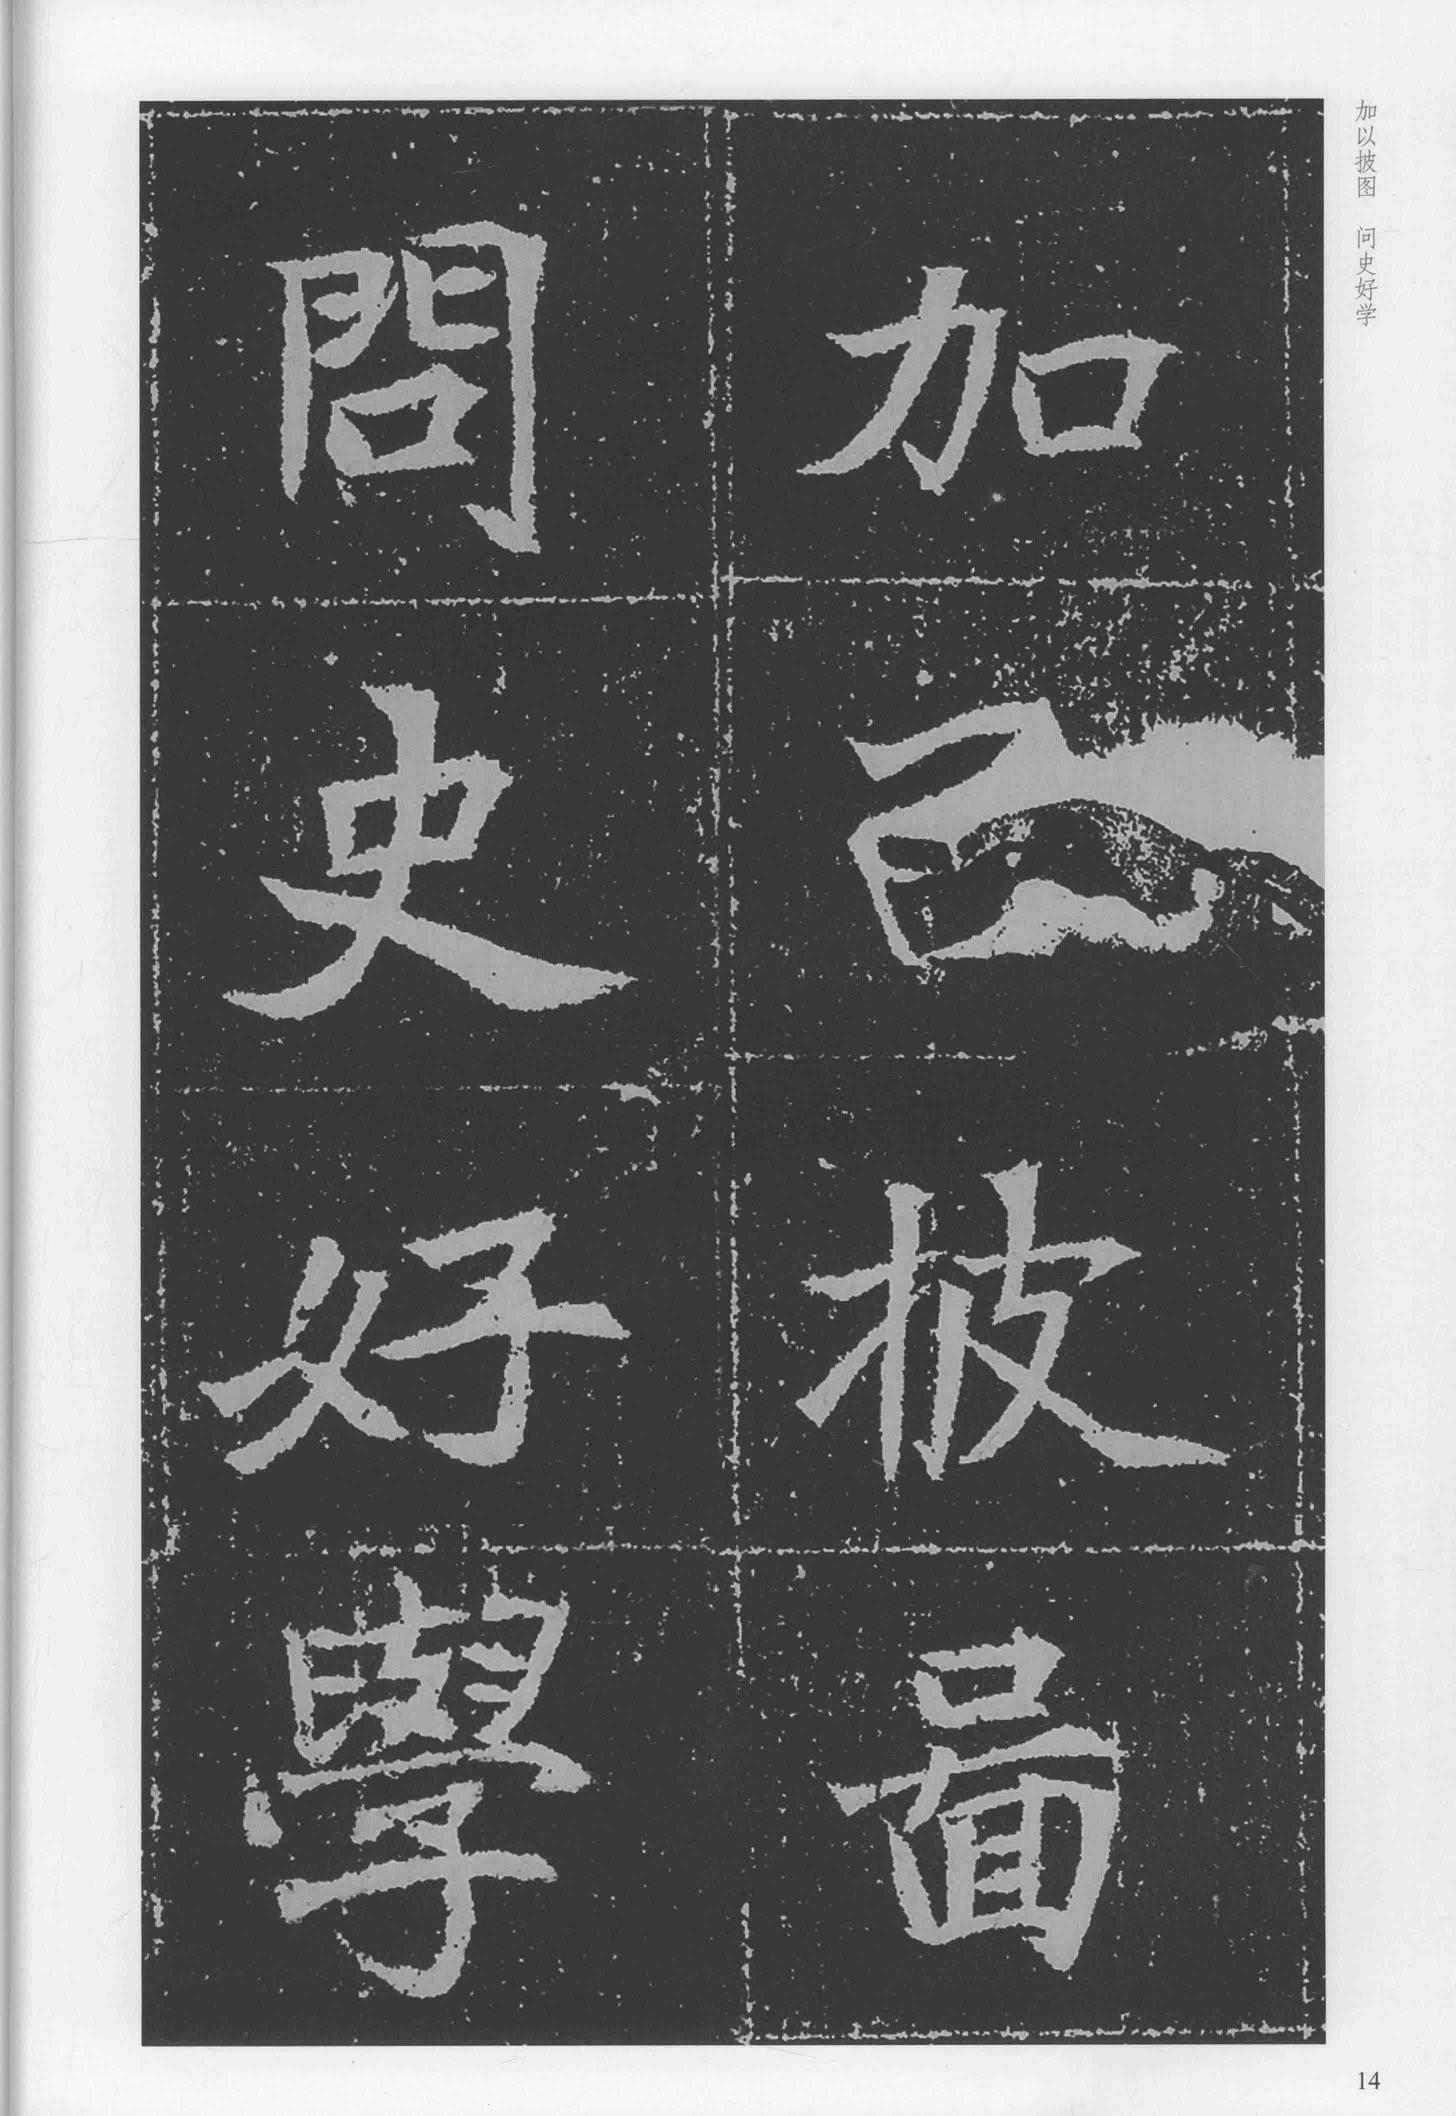 加以披图 问史好学
加㠯披啚
問史好學
14